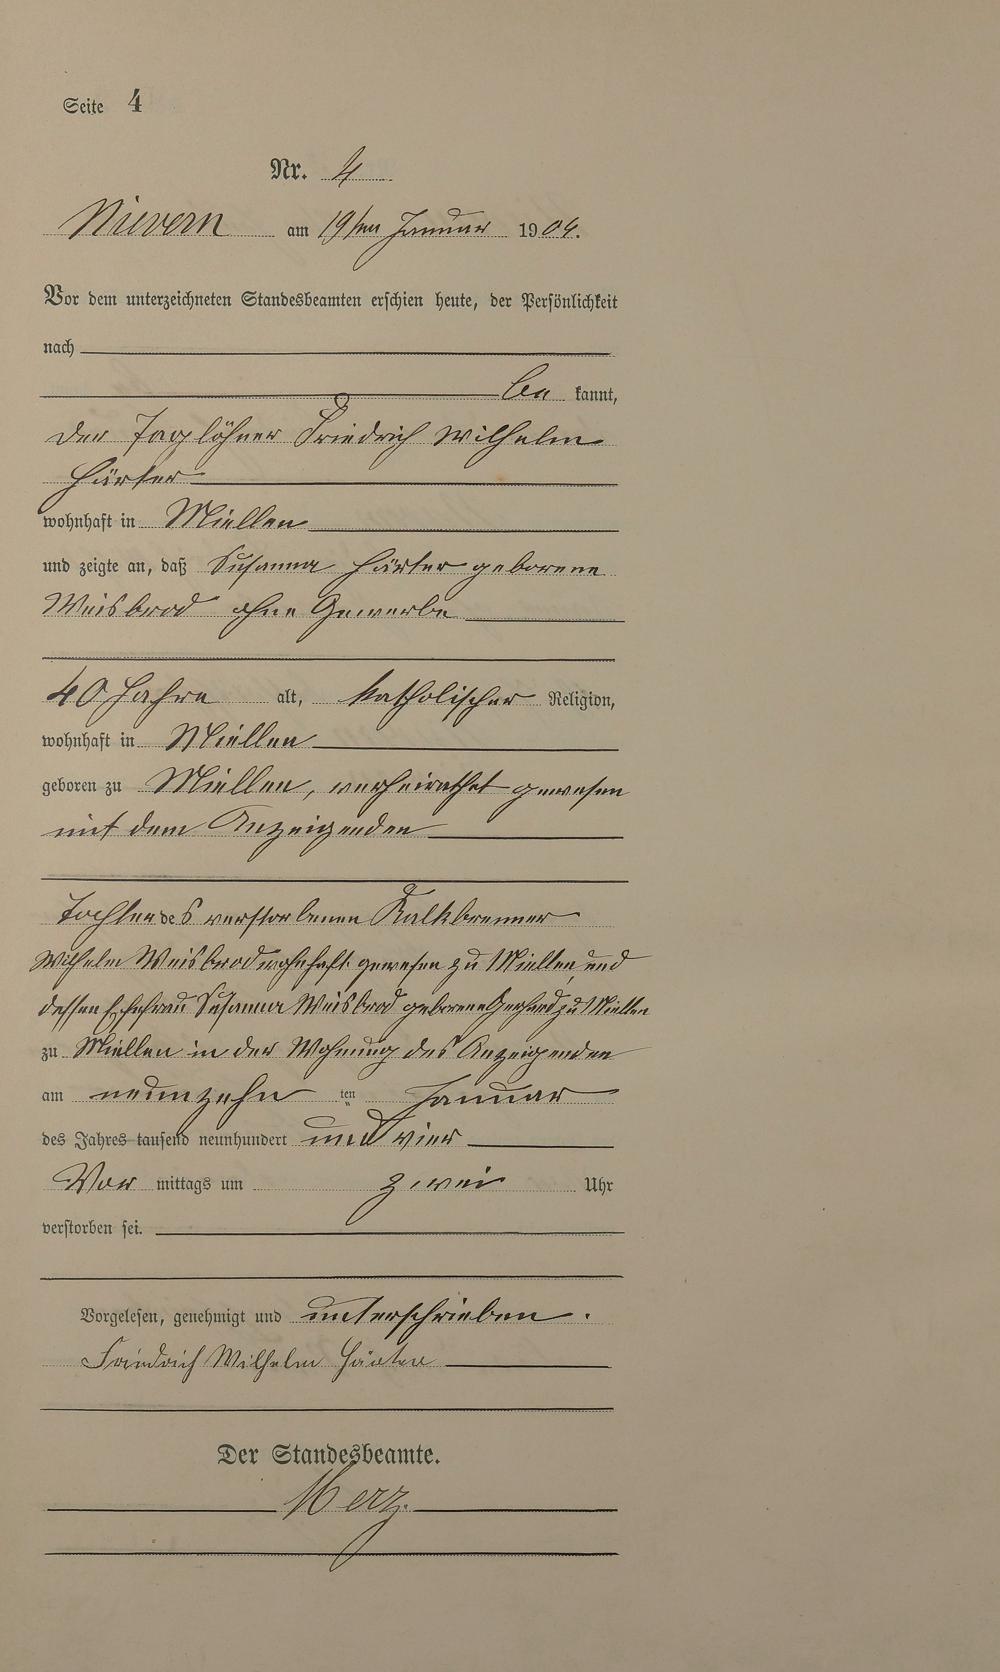 Seite 4
Nr. 4
Nievern am 19ten Januar 1904.
Vor dem unterzeichneten Standesbeamten erschien heute, der Persönlichkeit
nach
be kannt,
der Taglöhner Friedrich Wilhelm
Härter
wohnhaft in Miellen
und zeigte an, daß Susanna Härter geborene
Weisbrod ohne Gewerbe
40 Jahre alt, katholischer Religion,
wohnhaft in Miellen
geboren zu Miellen, verheirathet gewesen
mit dem Anzeigenden
Tochter des verstorbenen Kalkbrenner
Wilhelm Weisbrod wohnhaft gewesen zu Miellen und
dessen Ehefrau Susanna Weisbrod geborene Gerhard zu Miellen
zu Miellen in der Wohnung des Anzeigenden
am neunzehn ten Januar
des Jahres tausend neunhundert und vier
Vor mittags um zwei Uhr
verstorben sei.
Vorgelesen, genehmigt und unterschrieben.
Friedrich Wilhelm Härter
Der Standesbeamte.
Merz.